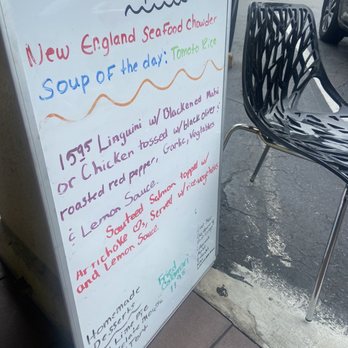 New England Seafood Chowder
Soup of the day: Tomato Rice
1595 Linguini w/ Blackened Mahi
or Chicken tossed w/ black olives
roasted red pepper, Garlic, Vegetables
& Lemon Sauce.
Sauteed Salmon topped w/
Artichoke Served w/ rice + vegetables
and Lemon Sauce.
Fried
11.95
Homemade
Desserts
Lime Pie